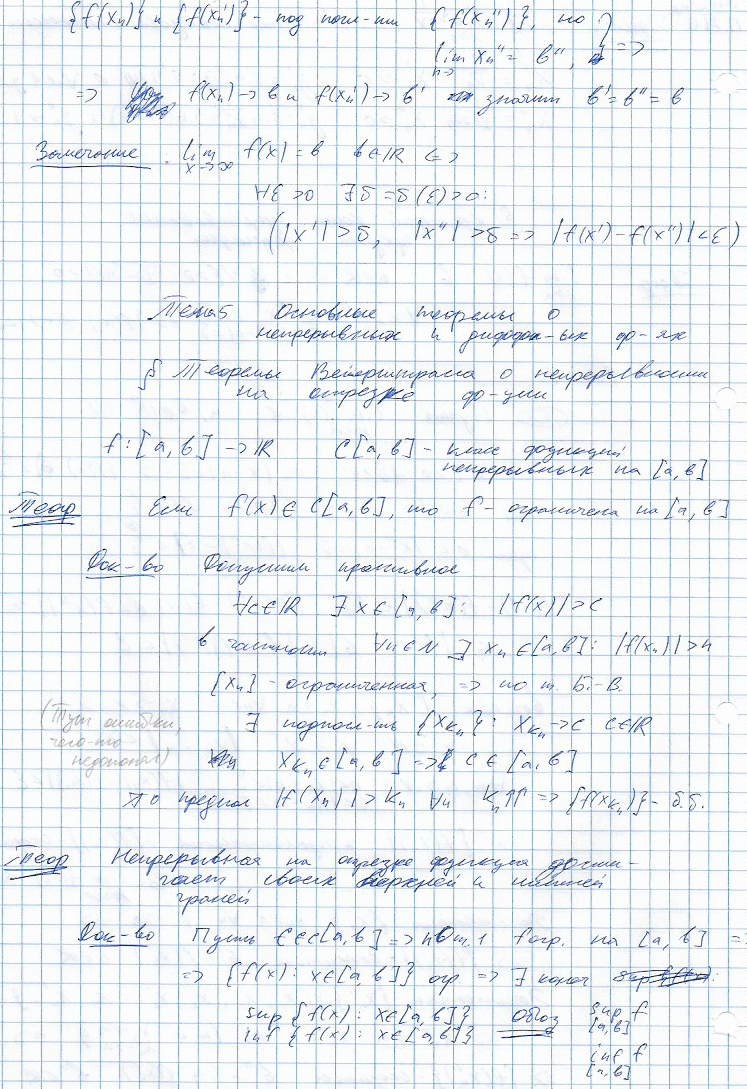 {f(xₙ)} и {f(xₙ')} - под посл-ти {f(xₙ'')}, но
lim xₙ'' = в'', } =>
n->
=> f(xₙ) -> в и f(xₙ') -> в' значит в' = в'' = в
Замечание. lim f(x) = в в ∈ IR <=>
x->∞
∀ε > 0 ∃δ = δ(ε) > 0:
(|x'| > δ, |x''| > δ => |f(x') - f(x'')| < ε)
Тема 5 Основные теоремы о
непрерывных и диффер-ых ф-ях
§ Теоремы Вейерштрасса о непрерывности
на отрезке ф-ции
f: [a, в] -> IR C[a, в] - класс функций
непрерывных на [a, в]
Теор Если f(x) ∈ C[a, в], то f - ограничена на [a, в]
Док-во Допустим противное
∀c ∈ IR ∃ x ∈ [a, в]: |f(x)| > c
в частности ∀n ∈ N ∃ xₙ ∈ [a, в]: |f(xₙ)| > n
{xₙ} - ограниченная, => по т. Б.-В.
(Тут ошибки, ∃ подпосл-ть {xₖₙ}: xₖₙ -> c c ∈ IR
чего-то
недопонял) xₖₙ ∈ [a, в] => c ∈ [a, в]
По предпол |f(xₙ)| > kₙ ∀n kₙ ↑↑ => {f(xₖₙ)} - б.б.
Теор Непрерывная на отрезке функция дости-
гает своих верхней и нижней
граней
Док-во Пусть f ∈ C[a, в] => по т.1 f огр. на [a, в] =>
=> {f(x): x ∈ [a, в]} огр => ∃ конеч
sup {f(x): x ∈ [a, в]} Обозн sup f
inf {f(x): x ∈ [a, в]} [a, в]
inf f
[a, в]